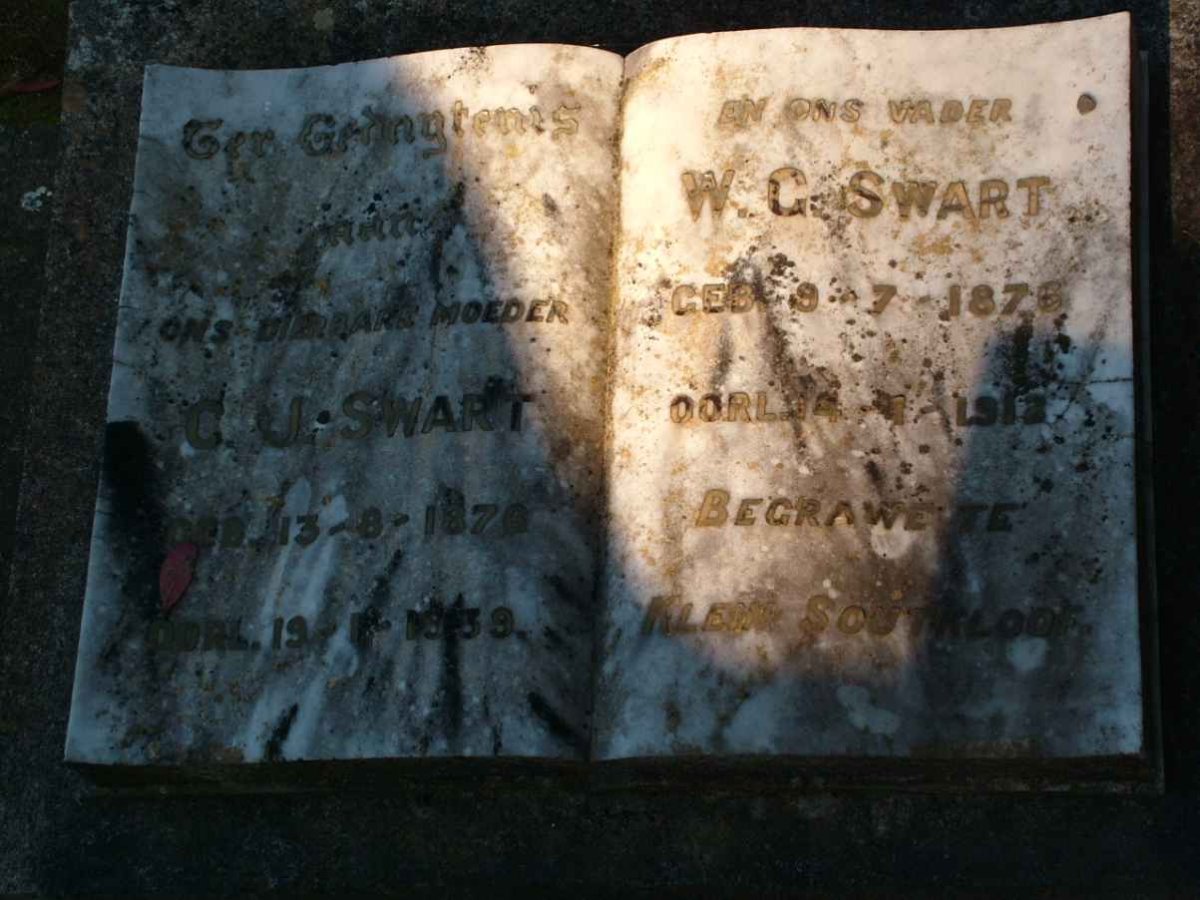 Ter Gedagtenis
aan
ONS DIERBARE MOEDER
C. J. SWART
GEB. 13-8-1876
OORL. 19-1-1939.
EN ONS VADER
W. G. SWART
GEB. 9-7-1876
OORL. 14-1-1912
BEGRAWE TE
KLEIN SOUTKLOOF.